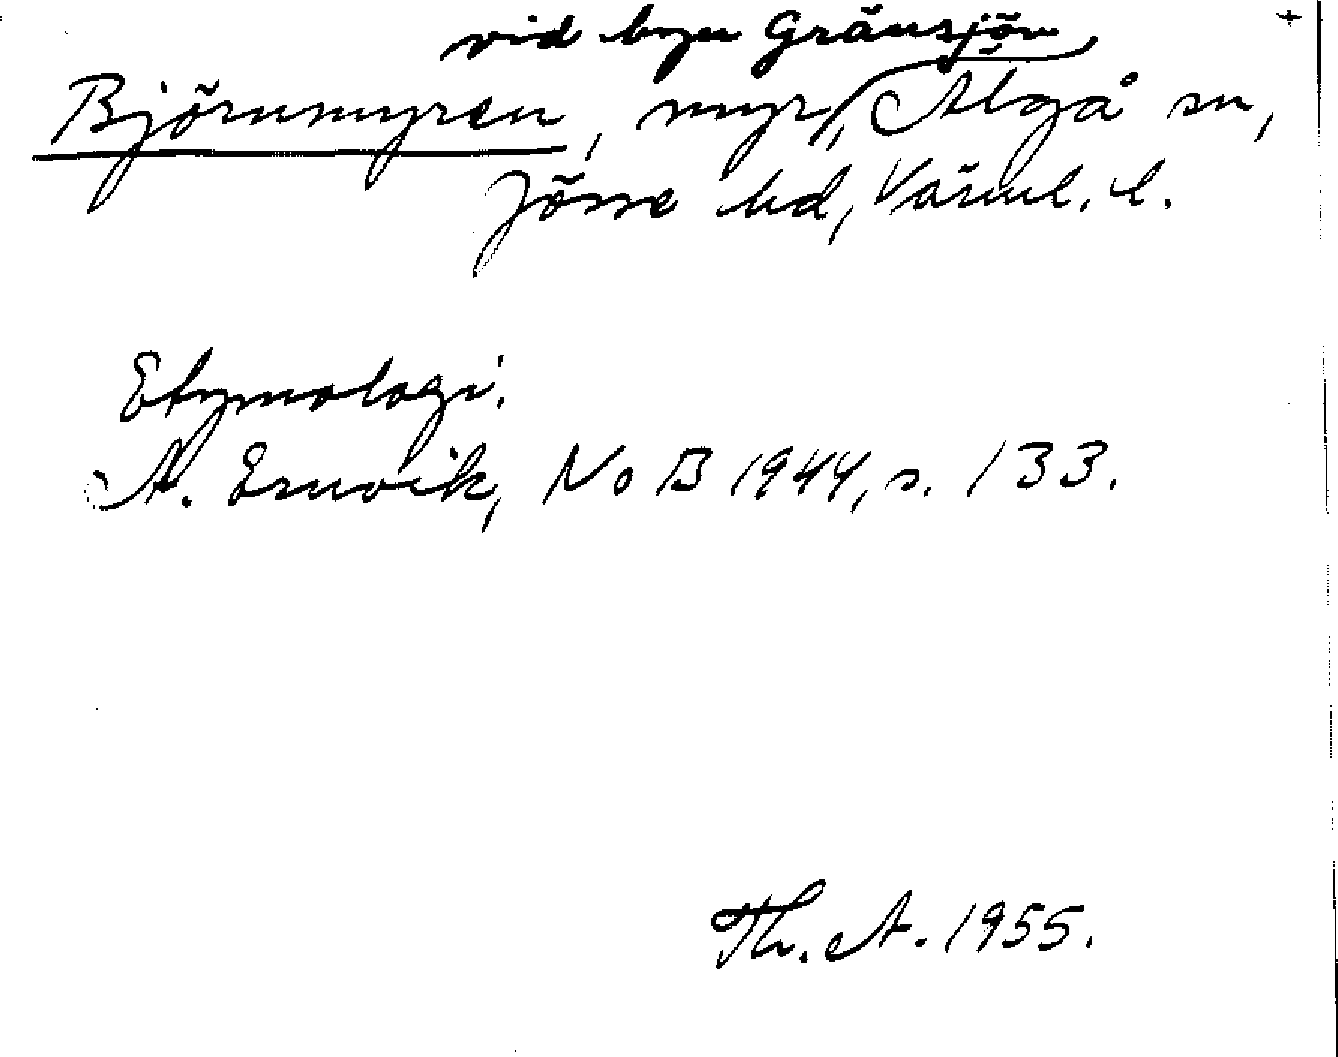 vid byn Gränsjön,
Björnmyren, myr, Älgå sn,
Jösse hd, Värml. l.
Etymologi.
A. Ernvik, NoB 1944, s. 133.
Th. A. 1955.